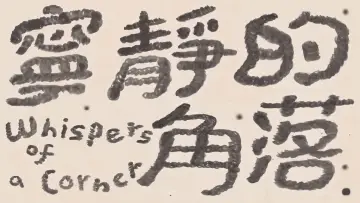 寧靜的
角落
Whispers
of
a Corner